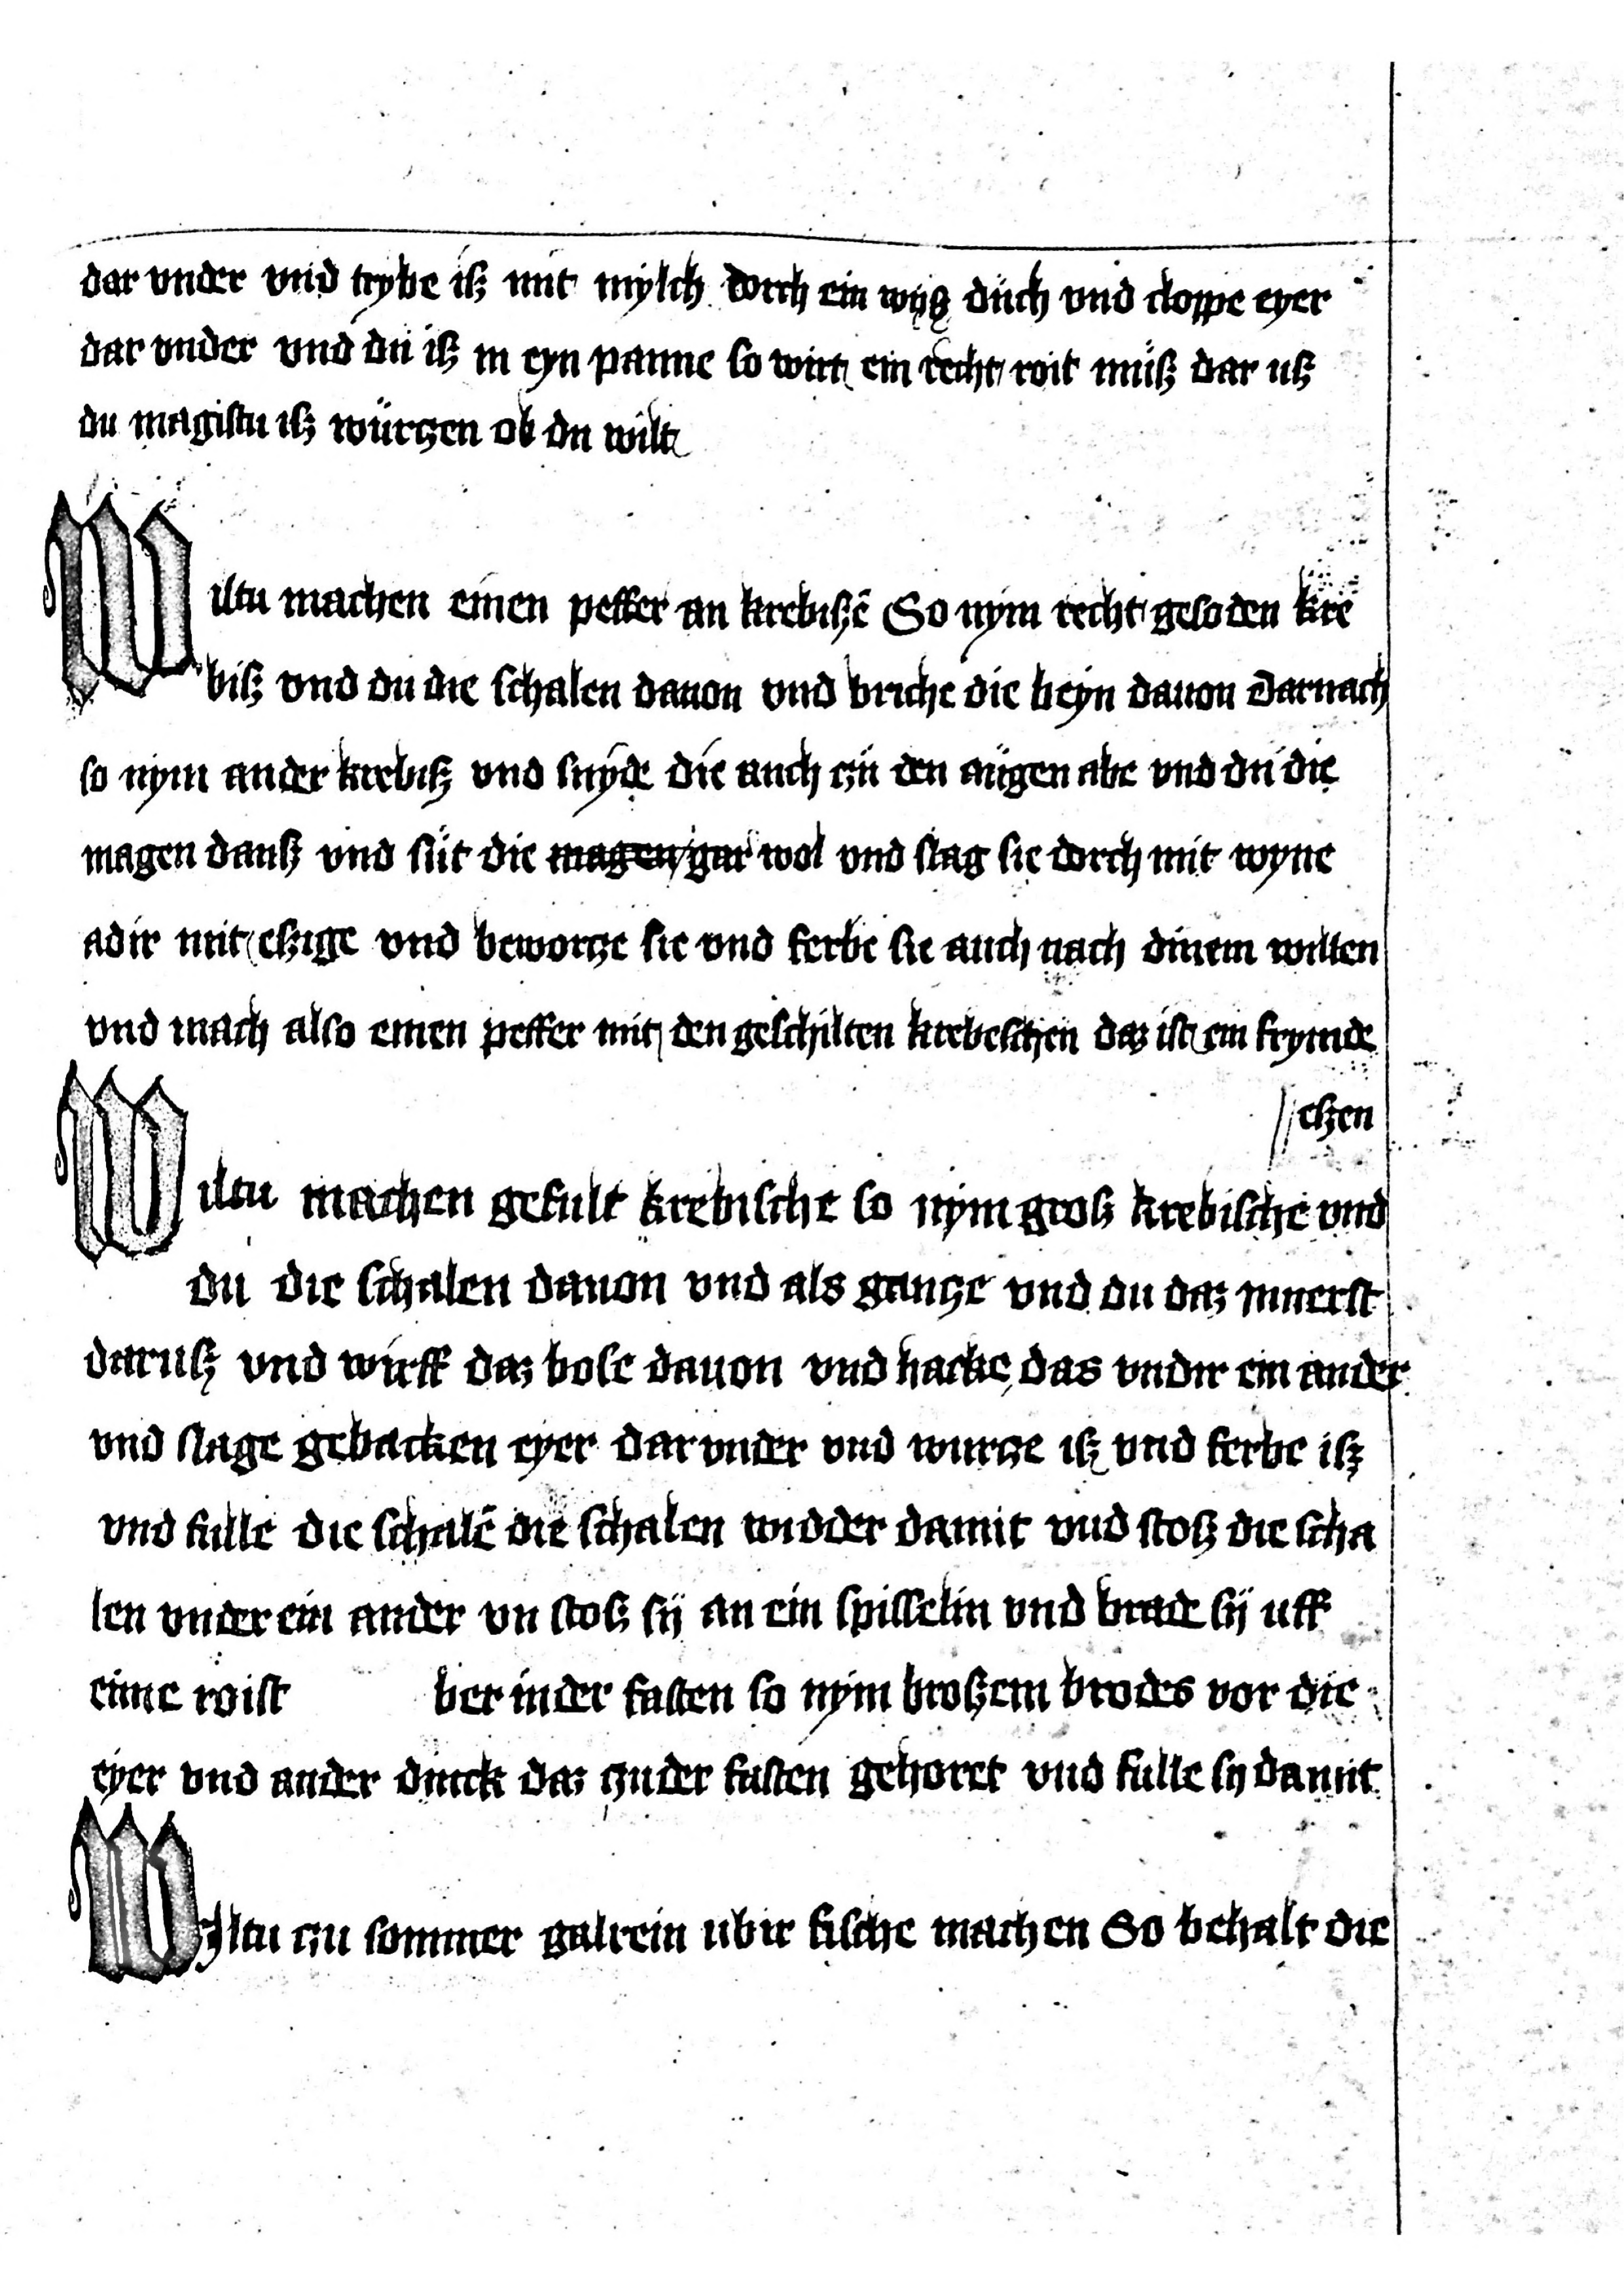 dar vnder vnd trybe iß mit mylch dorch ein wyß düch vnd cloppe eyer
dar vnder vnd dü iß in eyn panne so wirt ein recht roit müß dar uß
du magistu iß würtzen ob du wilt
Wiltu machen einen peffer an krebißē So nym recht gesoden kre
biß vnd du die schalen dauon vnd briche die beyn dauon Darnach
so nym ander krebiß vnd snyde die auch tzü den augen abe vnd dü die
magen dauß vnd süt die magen gar wol vnd slag sie dorch mit wyne
adir mit eßige vnd bewortze sie vnd ferbe sie auch nach dinem willen
vnd mach also einen peffer mit den geschilten krebeschen daz ist ein frymde
eßen
Wiltu machen gefult krebische so nym groß krebische vnd
dü die schalen dauon vnd als gantze vnd du daz innerst
daruß vnd wirff daz bose dauon vnd hacke das vndir ein ander
vnd slage gebacken eyer dar vnder vnd wurtze iß vnd ferbe iß
vnd fulle die schalē die schalen widder damit vnd stoß die scha
len vnder ein ander vn stoß sÿ an ein spisselin vnd brade sÿ uff
eime roist ber in der fasten so nym broßem brodes vor die
eyer vnd ander dinck daz tzu der fasten gehoret vnd fulle sy damit
WIltu tzu sommer galrein ubir fische machen So behalt die